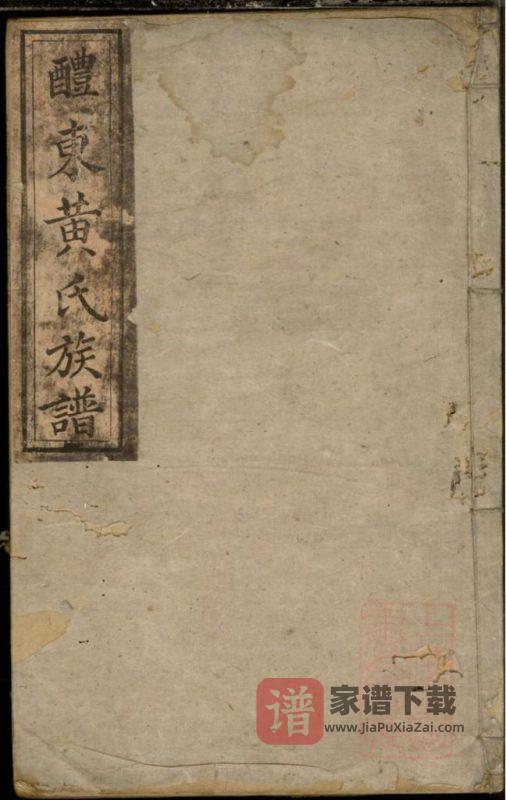 醴東黄氏族譜
谱
家谱下载
www.JiaPuXiaZai.com